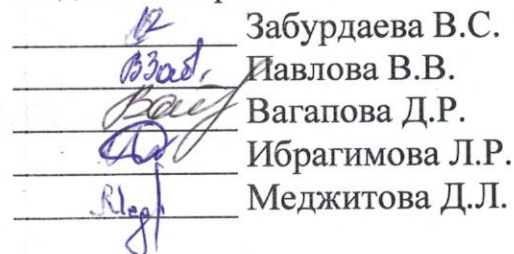 Забурдаева В.С.
Павлова В.В.
Вагапова Д.Р.
Ибрагимова Л.Р.
Меджитова Д.Л.